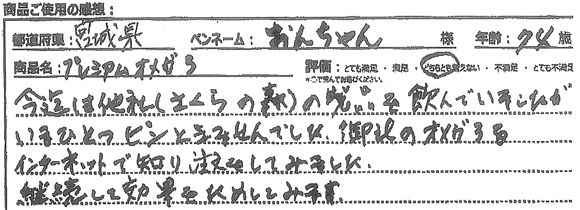 商品ご使用の感想:
都道府県: 宮城県 ペンネーム: おんちゃん 様 年齢: 74 歳
商品名: プレミアムオメガ3 評価: とても満足・満足・どちらとも言えない・不満足・とても不満足
※○で囲んでお選びください。
今迄は他社(さくらの森)の を飲んでいましたが
いまひとつピンときませんでした、御社のオメガ3を
インターネットで知り注文してみました。
継続して効果をためしてみます。